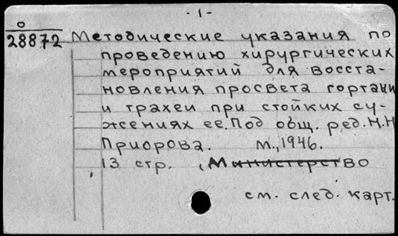 - 1 -
О
28872 Методические указания по
проведению хирургических
мероприятий для восста-
новления просвета гортани
и трахеи при стойких су-
жениях ее. Под общ. ред. Н.Н.
Приорова. М., 1946.
13 стр. , Министерство
см. след. карт.